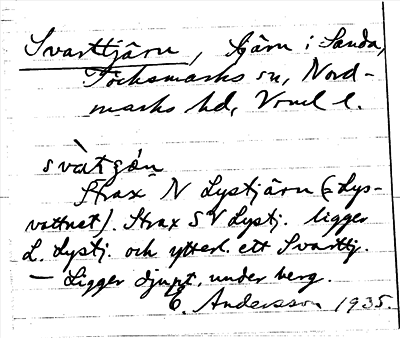 Svarttjärn, tjärn i Sanda,
Töcksmarks sn, Nord-
marks hd, Vrml l.
svàtgǿn
Strax N Lystjärn (= Lys-
vattnet). Strax SV Lystj. ligger
L. Lystj. och ytterl. ett Svarttj.
— Ligger djupt, under berg.
E. Andersson 1935.